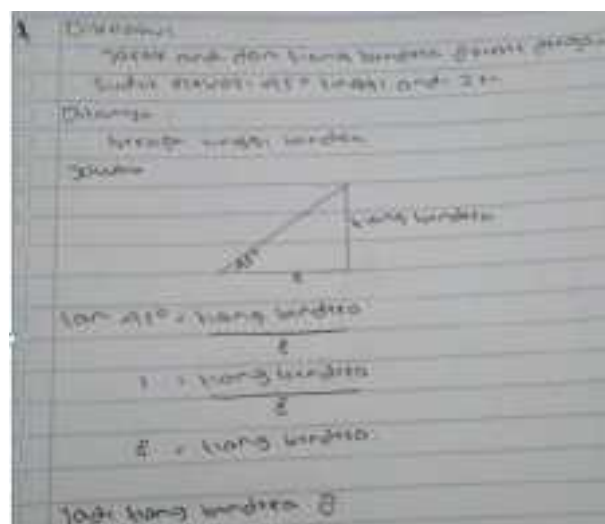 Diketahui
Jarak andi dan tiang bendera 8 meter dengan
Sudut elevasi 45° tinggi andi 2 m
Ditanya
berapa tinggi bendera
Jawab
tiang bendera
45°
8
tan 45° = tiang bendera
8
1 = tiang bendera
8
8 = tiang bendera
Jadi tiang bendera 8